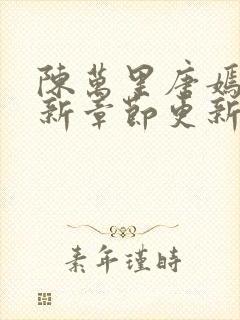 陳萬里唐嫣
新章節更新
素年瑾時